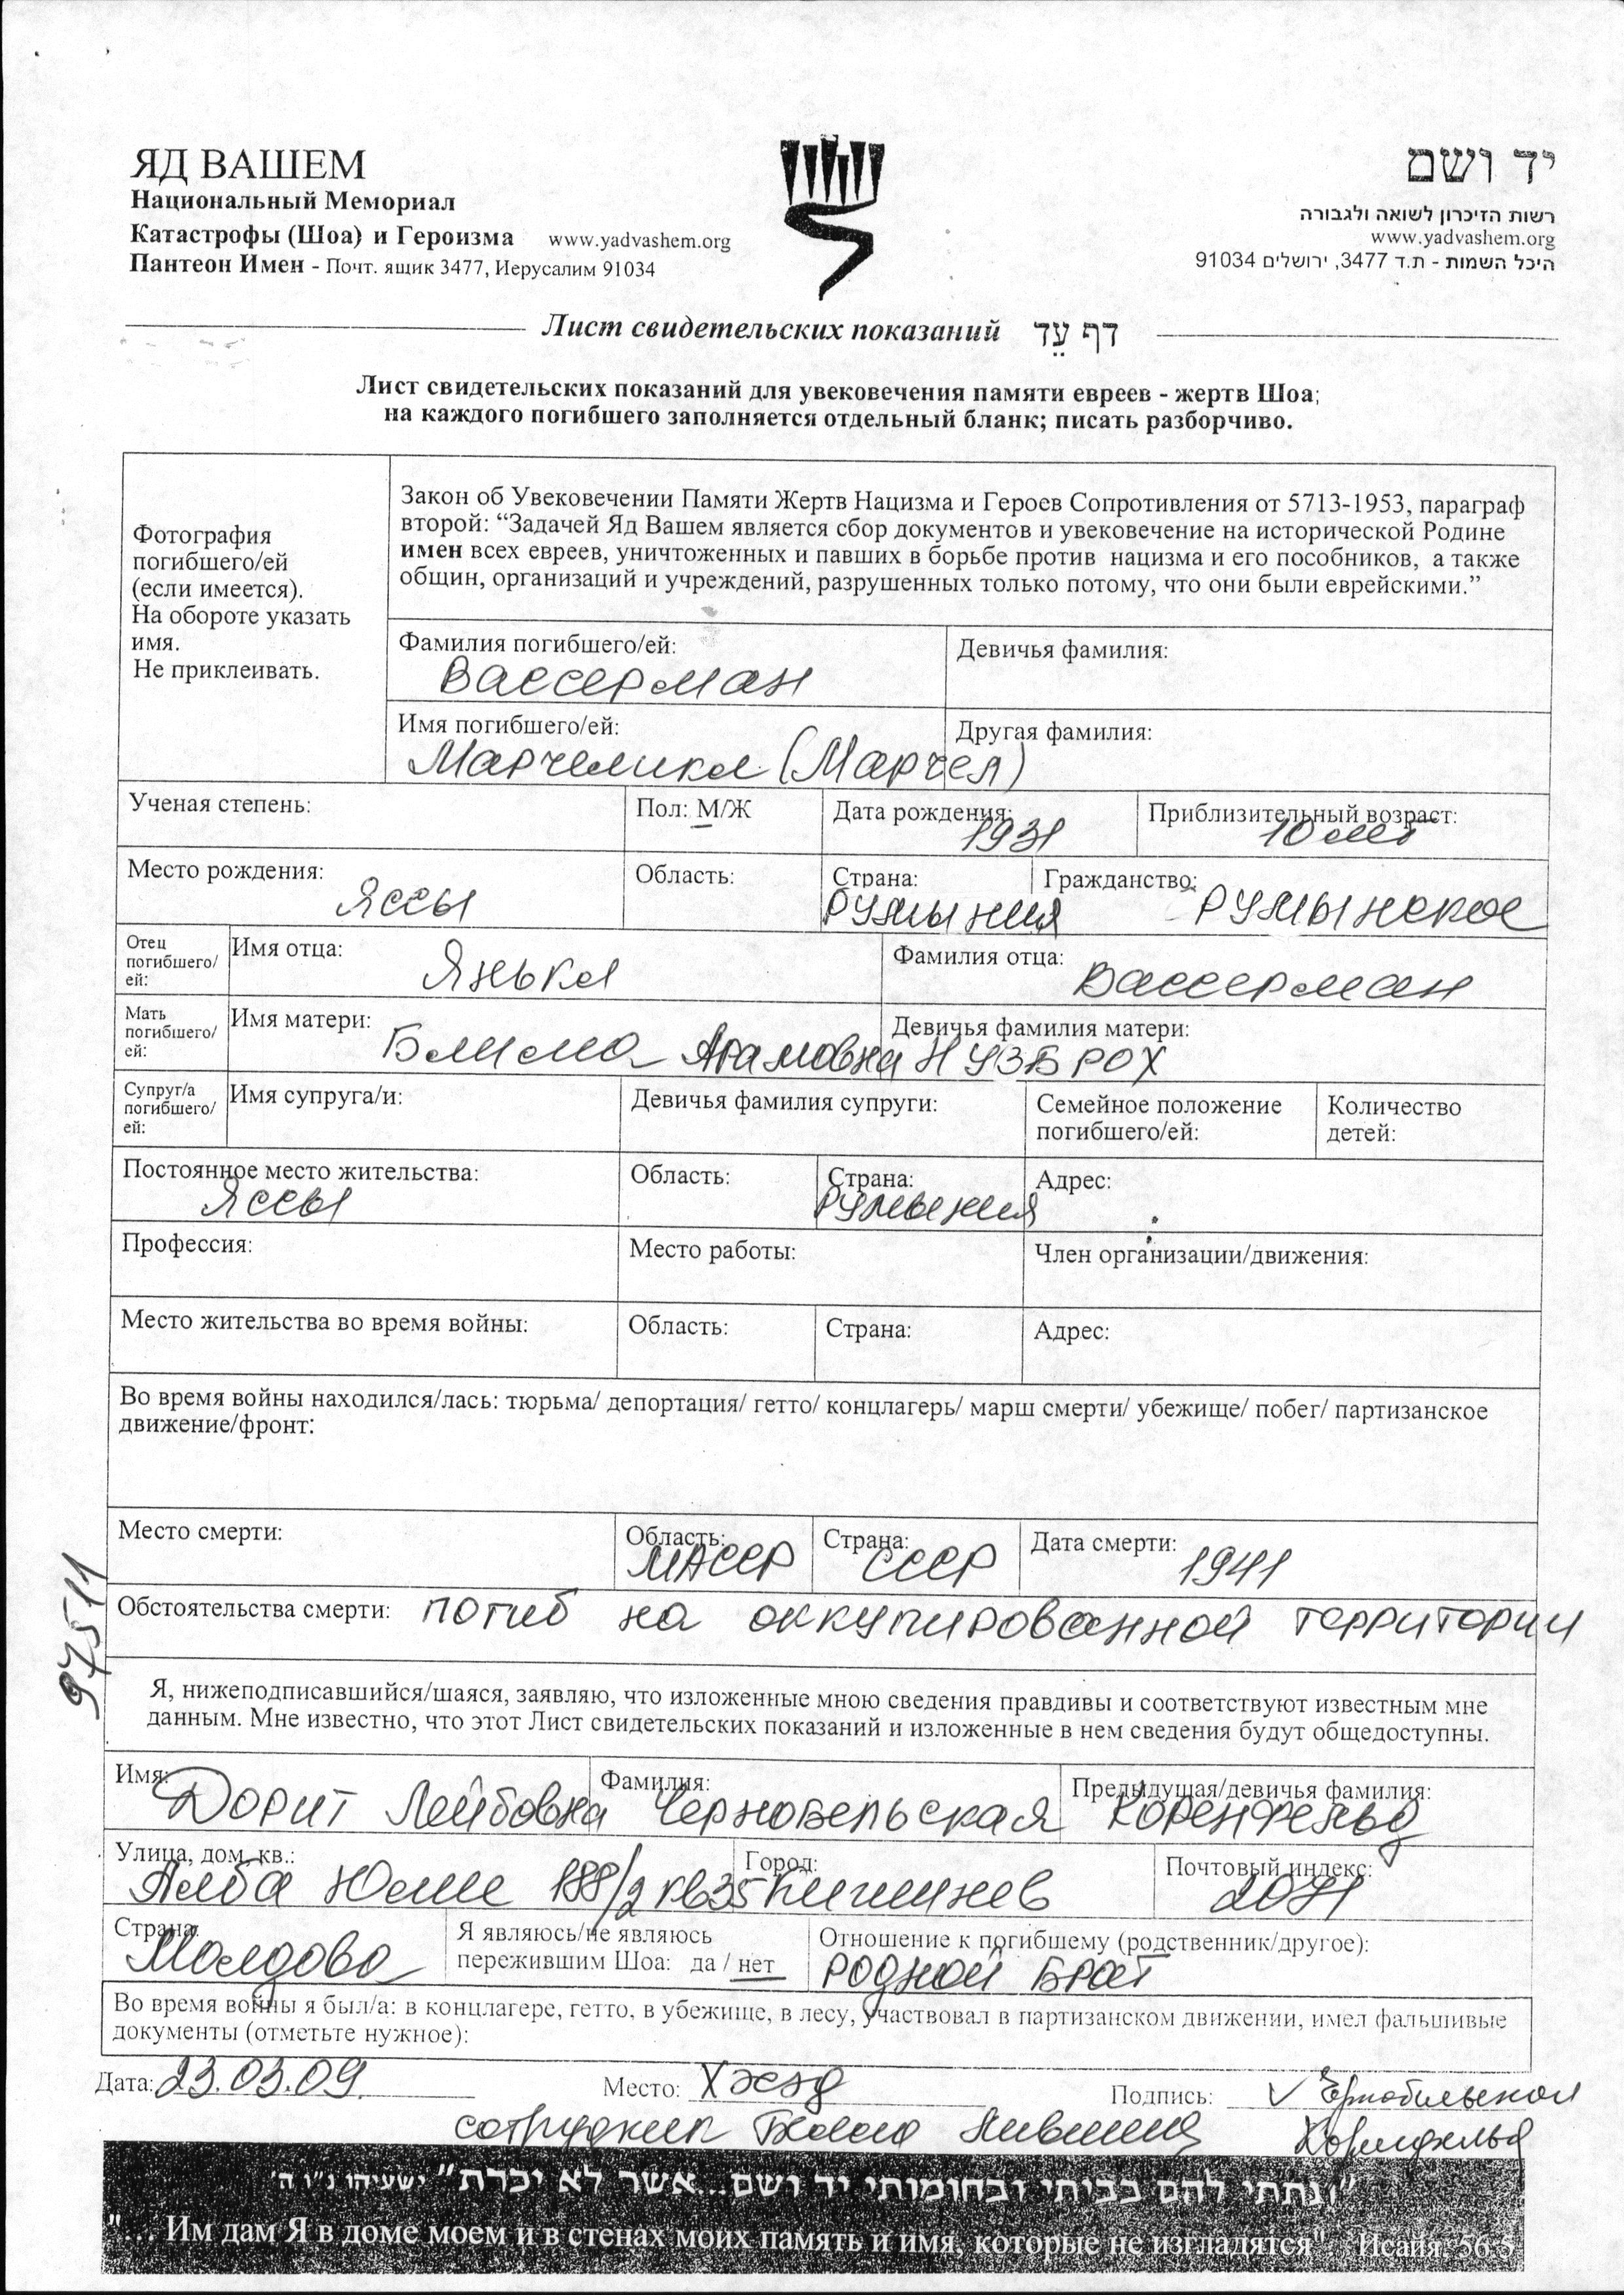 ЯД ВАШЕМ
Национальный Мемориал
Катастрофы (Шоа) и Героизма www.yadvashem.org
Пантеон Имен - Почт. ящик 3477, Иерусалим 91034
יד ושם
רשות הזיכרון לשואה ולגבורה
www.yadvashem.org
היכל השמות - ת.ד 3477, ירושלים 91034
Лист свидетельских показаний דף עֵד
Лист свидетельских показаний для увековечения памяти евреев - жертв Шоа;
на каждого погибшего заполняется отдельный бланк; писать разборчиво.
Фотография
погибшего/ей
(если имеется).
На обороте указать
имя.
Не приклеивать.
Закон об Увековечении Памяти Жертв Нацизма и Героев Сопротивления от 5713-1953, параграф
второй: “Задачей Яд Вашем является сбор документов и увековечение на исторической Родине
имен всех евреев, уничтоженных и павших в борьбе против нацизма и его пособников, а также
общин, организаций и учреждений, разрушенных только потому, что они были еврейскими.”
Фамилия погибшего/ей: Девичья фамилия:
Вассерман
Имя погибшего/ей: Другая фамилия:
Марчелика (Марчел)
Ученая степень: Пол: М/Ж Дата рождения: 1931 Приблизительный возраст: 10 лет
Место рождения: Яссы Область: Страна: Румыния Гражданство: Румынское
Отец
погибшего/
ей:
Имя отца: Янька Фамилия отца: Вассерман
Мать
погибшего/
ей:
Имя матери: Блима Абрамовна Девичья фамилия матери: НУЗБРОХ
Супруг/а
погибшего/
ей:
Имя супруга/и: Девичья фамилия супруги: Семейное положение
погибшего/ей: Количество
детей:
Постоянное место жительства: Яссы Область: Страна: Румыния Адрес:
Профессия: Место работы: Член организации/движения:
Место жительства во время войны: Область: Страна: Адрес:
Во время войны находился/лась: тюрьма/ депортация/ гетто/ концлагерь/ марш смерти/ убежище/ побег/ партизанское
движение/фронт:
Место смерти: Область: МАССР Страна: СССР Дата смерти: 1941
Обстоятельства смерти: погиб на оккупированной территории
97511
Я, нижеподписавшийся/шаяся, заявляю, что изложенные мною сведения правдивы и соответствуют известным мне
данным. Мне известно, что этот Лист свидетельских показаний и изложенные в нем сведения будут общедоступны.
Имя: Дорит Лейбовна Фамилия: Чернобельская Предыдущая/девичья фамилия: Коренфельд
Улица, дом, кв.: Алба Юлие 188/2 кв35 Город: Кишинев Почтовый индекс: 2071
Страна: Молдова Я являюсь/не являюсь
пережившим Шоа: да / нет Отношение к погибшему (родственник/другое):
родной брат
Во время войны я был/а: в концлагере, гетто, в убежище, в лесу, участвовал в партизанском движении, имел фальшивые
документы (отметьте нужное):
Дата: 23.03.09. Место: Хэсэд Подпись:
сотрудник Лившиц
"ונתתי להם בביתי ובחומותי יד ושם...אשר לא יכרת" ישעיהו נ"ו ה'
"... Им дам Я в доме моем и в стенах моих память и имя, которые не изгладятся" Исайя 56:5